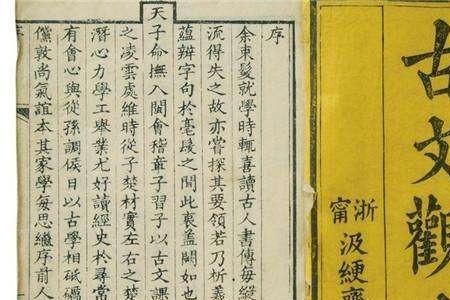 古文觀
浙
甯
汲綆齋
序
余束髮就學時輒喜讀古人書傳每縱
流得失之故亦嘗探其要領若乃析義
蘊辨字句於毫髮之間此衷蓋闕如也
天子命撫八閩會稽章子習子以古文課
之凌雲處維時從子楚材實左右之楚
潛心力學工舉業尤好讀經史於尋常
有會心與從孫調侯日以古學相砥礪
儻敦尚氣誼本其家學每思繼序前人